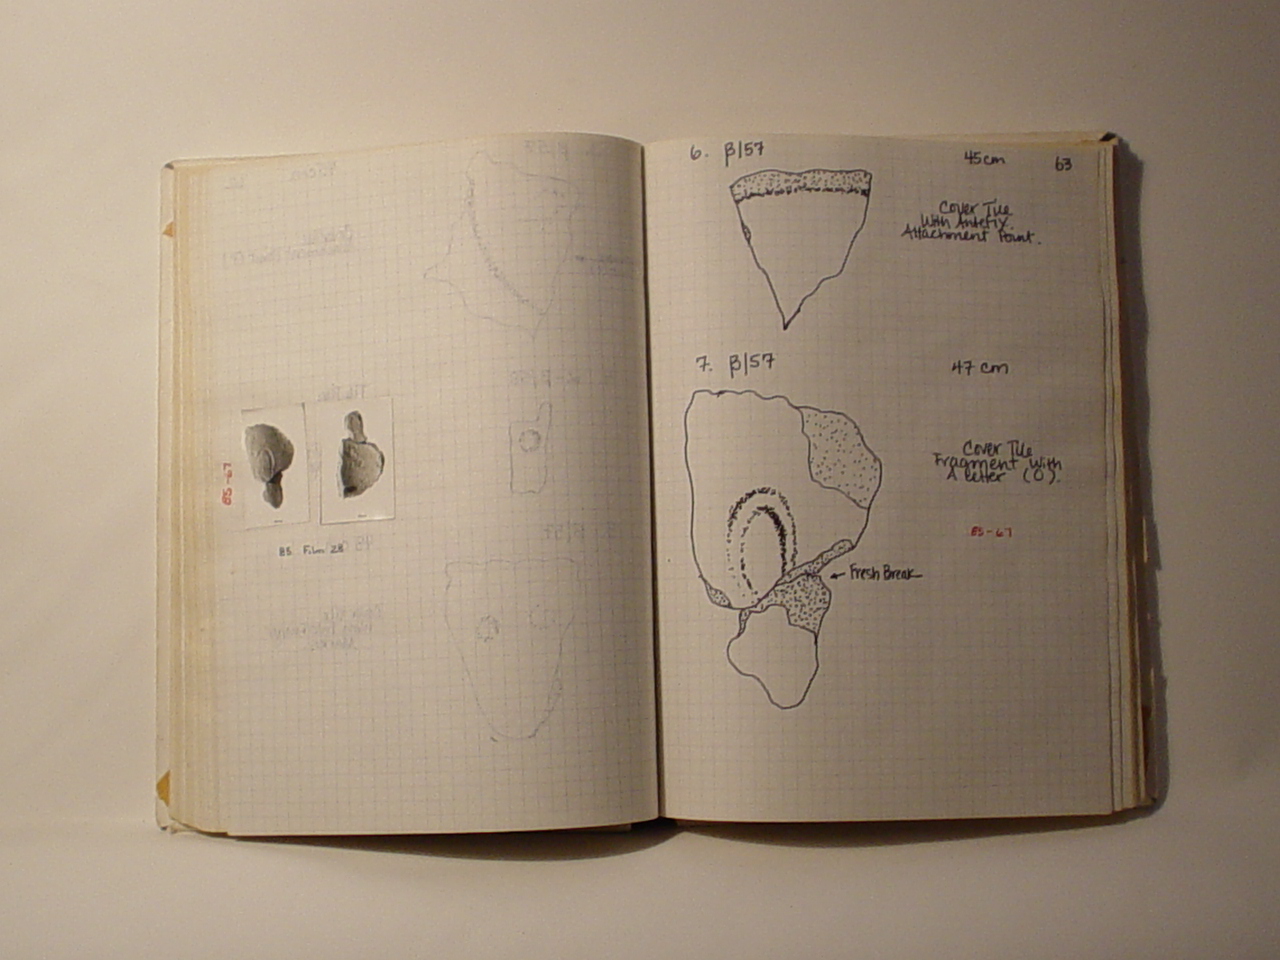 85-67
85 Film 28
6. β/57
45cm
63
Cover Tile
With Antefix
Attachment Point.
7. β/57
47 cm
Cover Tile
Fragment With
A Letter (O).
85-67
← Fresh Break